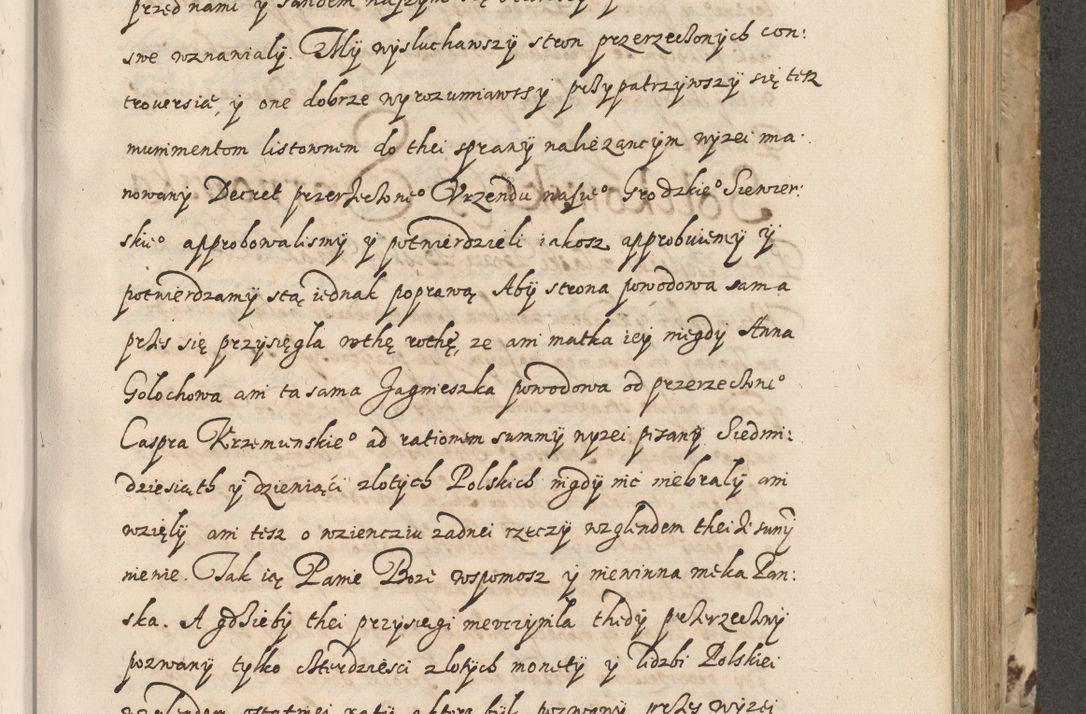 przed nami y sandem naszym się
swe wznawialy. My wysluchawszy stron przerzeczonych con:
troversię, y one dobrze wyrozumiawszy przypatrzywszy się tesz
mummentom listownem do thei sprawy należączym wyzei ma:
nowany Decret przerzeczone° Vrzendu nasze° Grodzkie° Siewier:
skie° approbowalismy y potwierdzieli iakosz approbuiemy y
potwierdzamy stą iednak poprawą Aby strona powodowa sama
przes się przysięgla rothę rothę, ze ani matka iey niegdy Anna
Golochowa ani ta sama Jagnieszka powodowa od przerzeczone°
Caspra Krzemienskie° ad rationem summy wyzei pisany Siedmi:
dziesiąth y dziewiąci zlotych Polskich nigdy nic niebraly ani
wzięly ani tesz o wzienciu zadnei rzeczy wzglendem thei ze sumy
niewie. Tak ię Panie Boze wspomosz y niewinna męka Pan:
ska. A gdzieby thei przysiegi nieuczynila thedy przerzeczony
pozwany tylko czterdziesci zlotych monety y liczbi Polskiei
wzglendem ostatniei ratÿ o ktora był pozwany przes wyzei